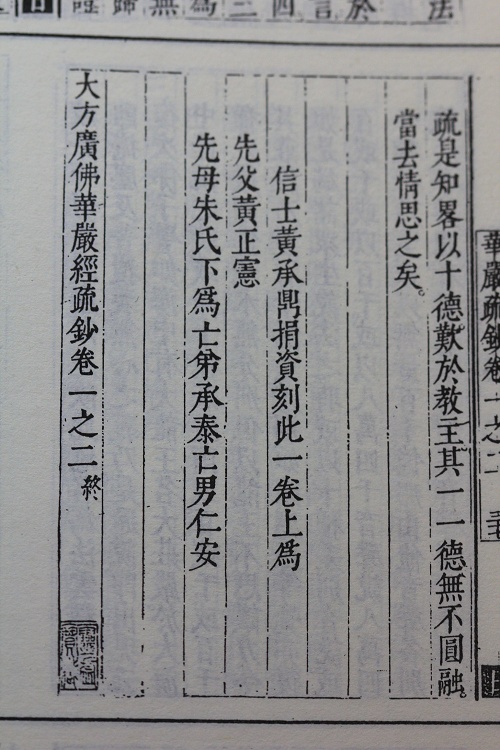 法於言四三為無歸證
華嚴疏鈔卷一之二
疏是知畧以十德歎於教主其一一德無不圓融。
當去情思之矣。
信士黃承鼎捐資刻此一卷上為
先父黃正憲
先母朱氏下為亡弟承泰亡男仁安
大方廣佛華嚴經疏鈔卷一之二 終